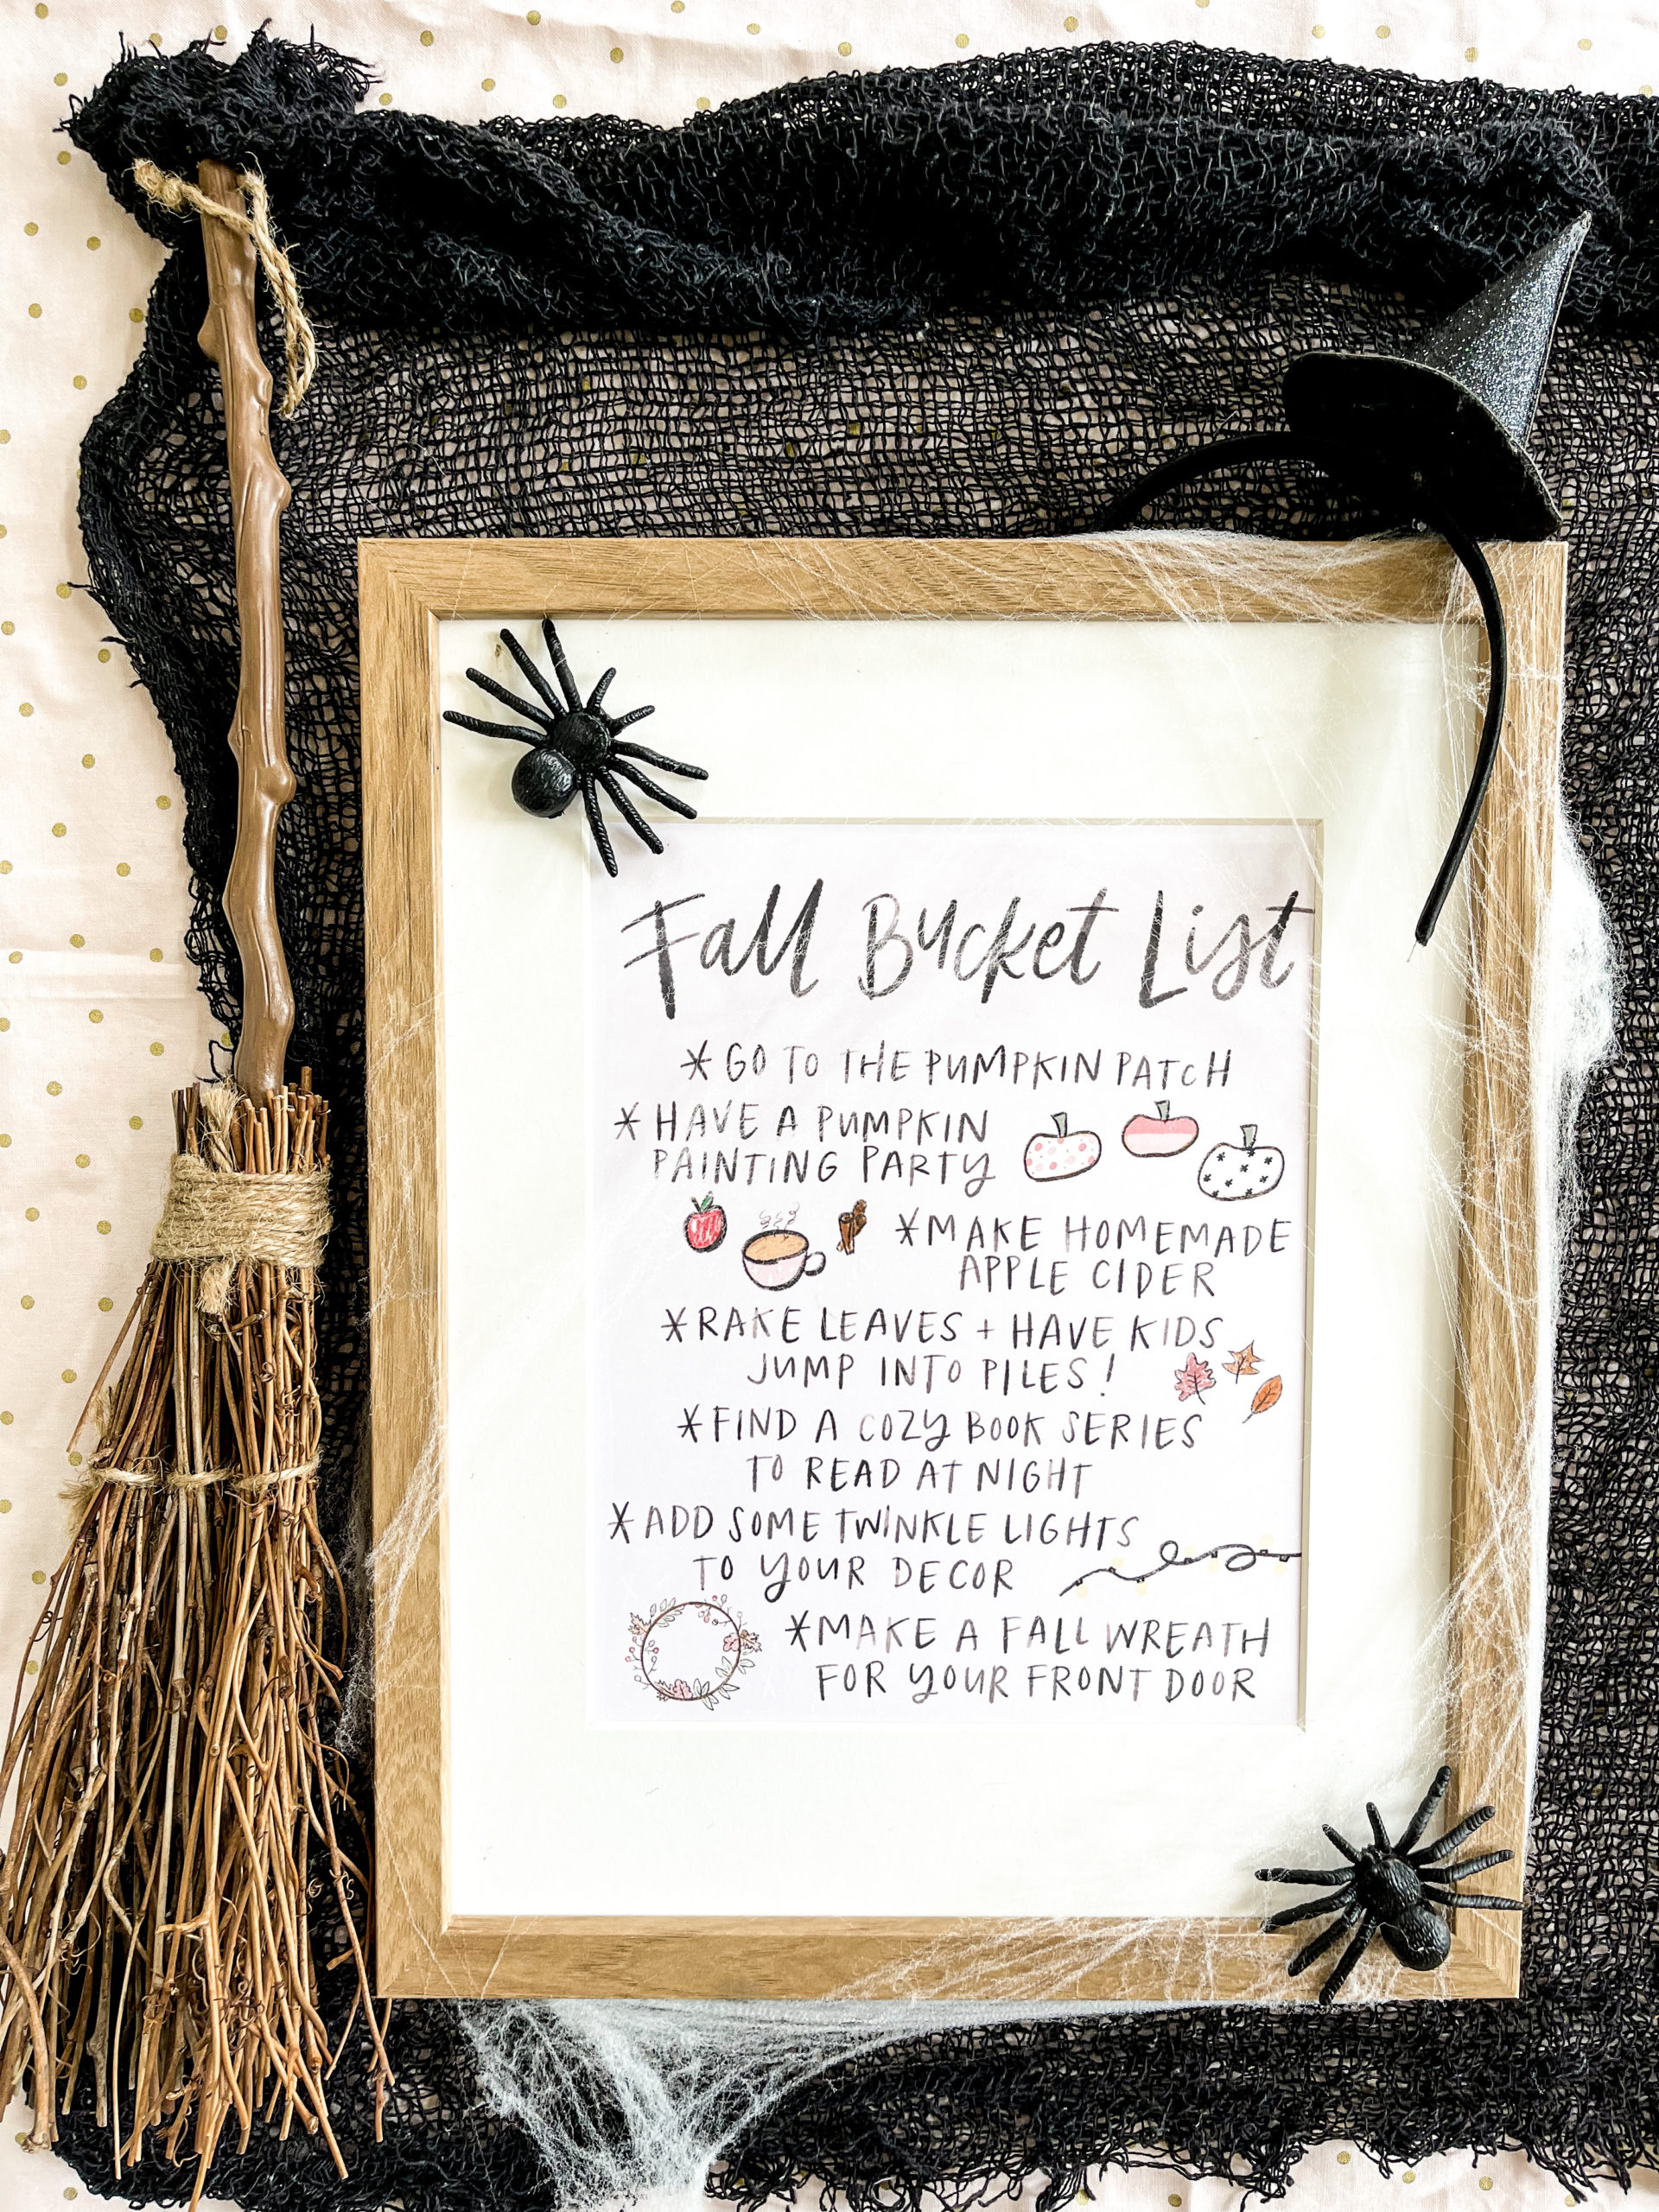 Fall Bucket List
*GO TO THE PUMPKIN PATCH
*HAVE A PUMPKIN
PAINTING PARTY
*MAKE HOMEMADE
APPLE CIDER
*RAKE LEAVES + HAVE KIDS
JUMP INTO PILES!
*FIND A COZY BOOK SERIES
TO READ AT NIGHT
*ADD SOME TWINKLE LIGHTS
TO YOUR DECOR
*MAKE A FALL WREATH
FOR YOUR FRONT DOOR